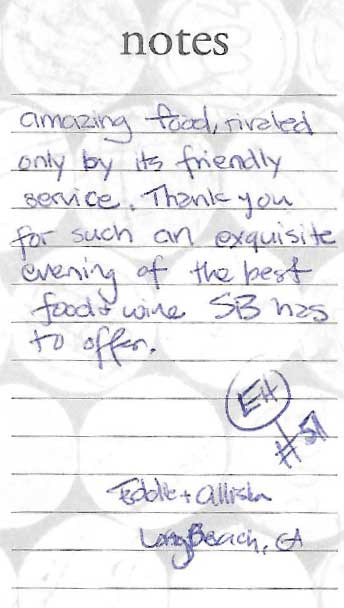 notes
amazing food, rivaled
only by its friendly
service. Thank you
for such an exquisite
evening of the best
food + wine SB has
to offer.
EH
#51
Eddie + Allison
Long Beach, CA